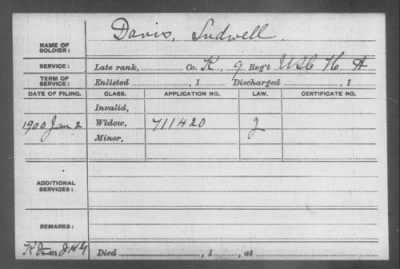 NAME OF SOLDIER: Davis, Ludwell.
SERVICE: Late rank, Co. K, 9 Reg't U S C H A
TERM OF SERVICE: Enlisted , 1 Discharged , 1
DATE OF FILING. CLASS. APPLICATION NO. LAW. CERTIFICATE NO.
Invalid,
1900 Jan 2 Widow, 711420 2
Minor,
ADDITIONAL SERVICES:
REMARKS:
Died , 1 , at